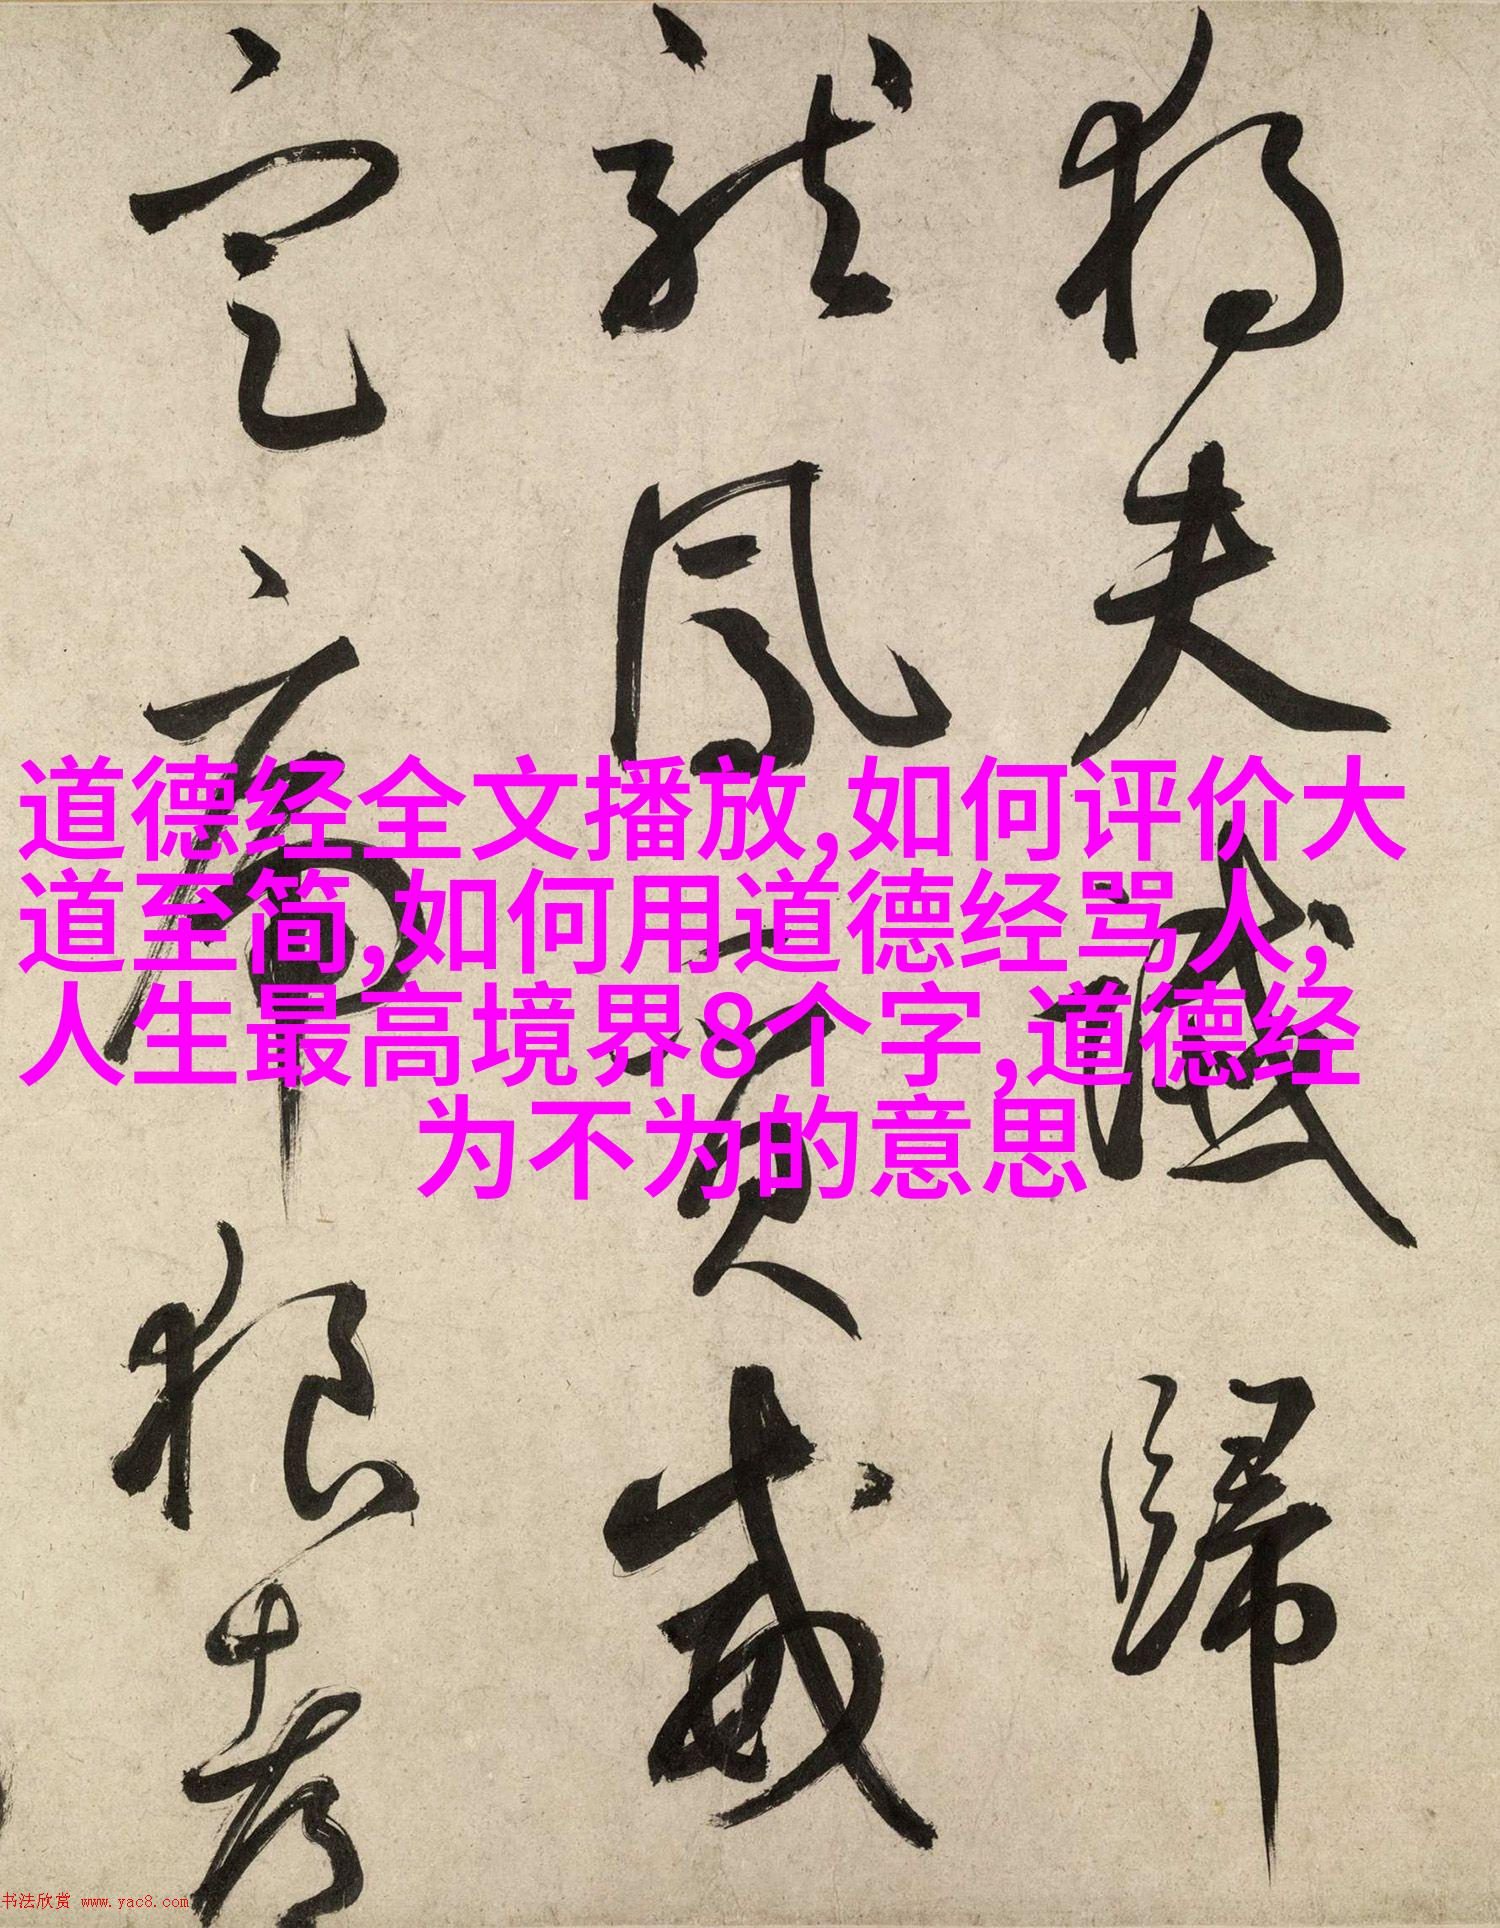 道德经全文播放,如何评价大
道至简,如何用道德经骂人,
人生最高境界8个字,道德经
为不为的意思
獨夫讖歸
龍鳳質威
定虎狼都
书法欣赏 www.yac8.com